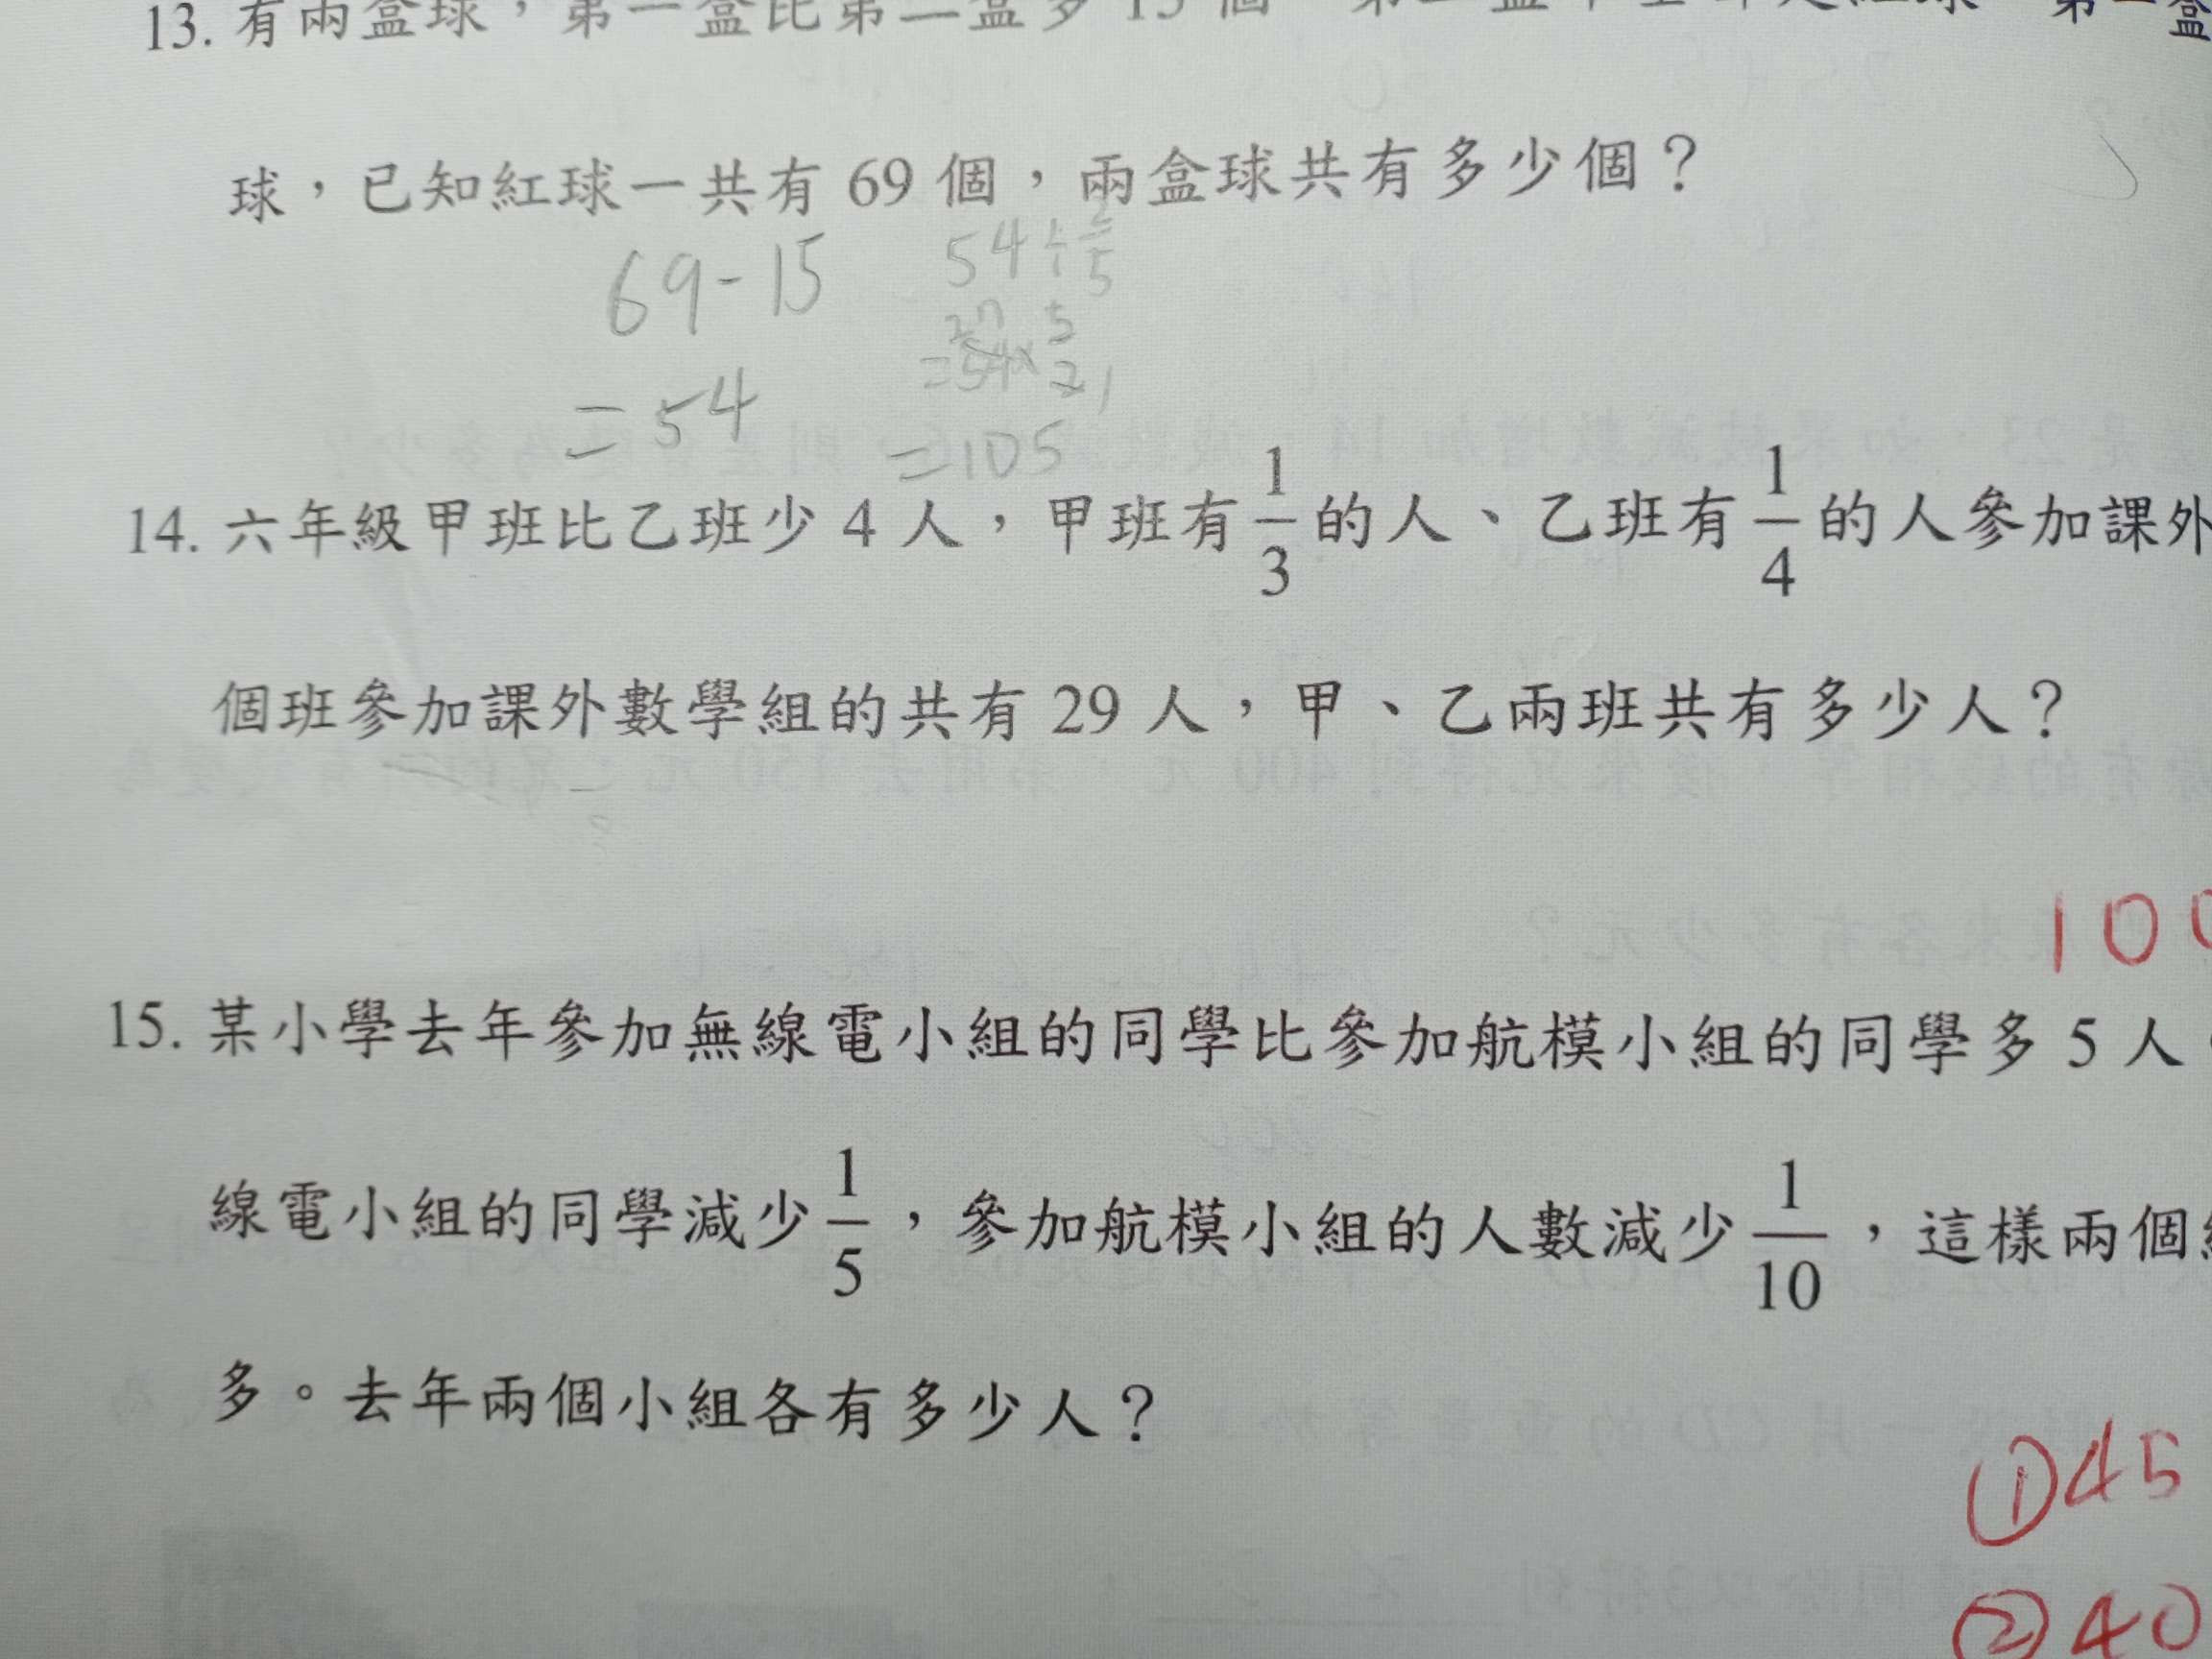 13. 有兩盒球，第一盒比第二盒多 15 個
球，已知紅球一共有 69 個，兩盒球共有多少個？
69-15
54÷2/5
27 5
=54× 2 1
=54
=105
14. 六年級甲班比乙班少 4 人，甲班有1/3的人、乙班有1/4的人參加課外
個班參加課外數學組的共有 29 人，甲、乙兩班共有多少人？
100
15. 某小學去年參加無線電小組的同學比參加航模小組的同學多 5 人
線電小組的同學減少1/5，參加航模小組的人數減少1/10，這樣兩個
多。去年兩個小組各有多少人？
①45
②40